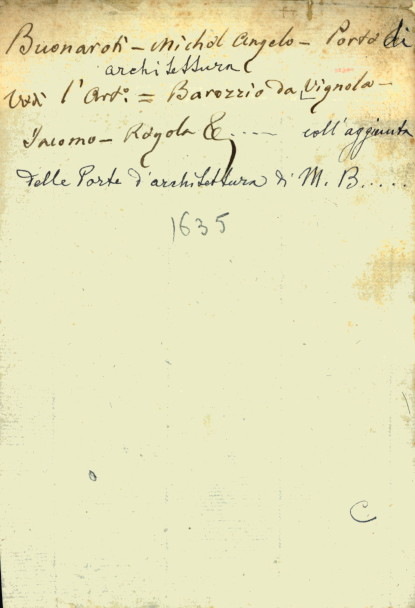 Buonaroti - Michel Angelo - Porte di
architettura
Vedi l'Arto. = Barozzio da Vignola -
Iacomo - Regola & .... coll'aggiunta
delle Porte d'architettura di M. B.....
1635
C